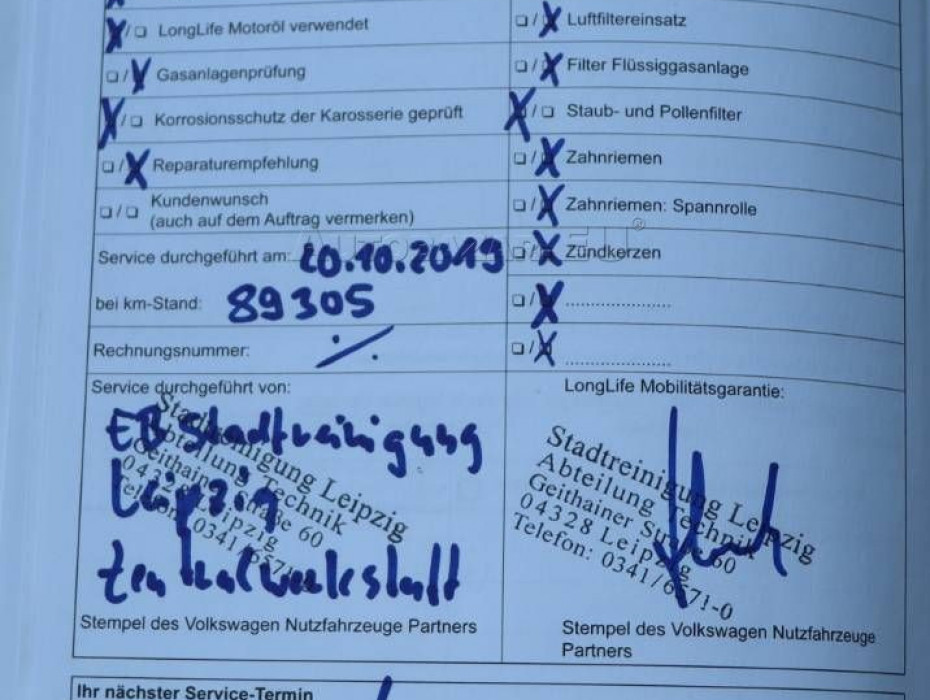 LongLife Motoröl verwendet
Gasanlagenprüfung
Korrosionsschutz der Karosserie geprüft
Reparaturempfehlung
Kundenwunsch
(auch auf dem Auftrag vermerken)
Service durchgeführt am: 20.10.2019
bei km-Stand: 89305
Rechnungsnummer: ·/.
Service durchgeführt von:
EB Stadtreinigung
Leipzig
Zentralwerkstatt
Stadtreinigung Leipzig
Abteilung Technik
Geithainer Straße 60
04328 Leipzig
Telefon: 0341/6571-
Stempel des Volkswagen Nutzfahrzeuge Partners
Luftfiltereinsatz
Filter Flüssiggasanlage
Staub- und Pollenfilter
Zahnriemen
Zahnriemen: Spannrolle
Zündkerzen
LongLife Mobilitätsgarantie:
Stadtreinigung Leipzig
Abteilung Technik
Geithainer Straße 60
04328 Leipzig
Telefon: 0341/6571-0
Stempel des Volkswagen Nutzfahrzeuge
Partners
Ihr nächster Service-Termin